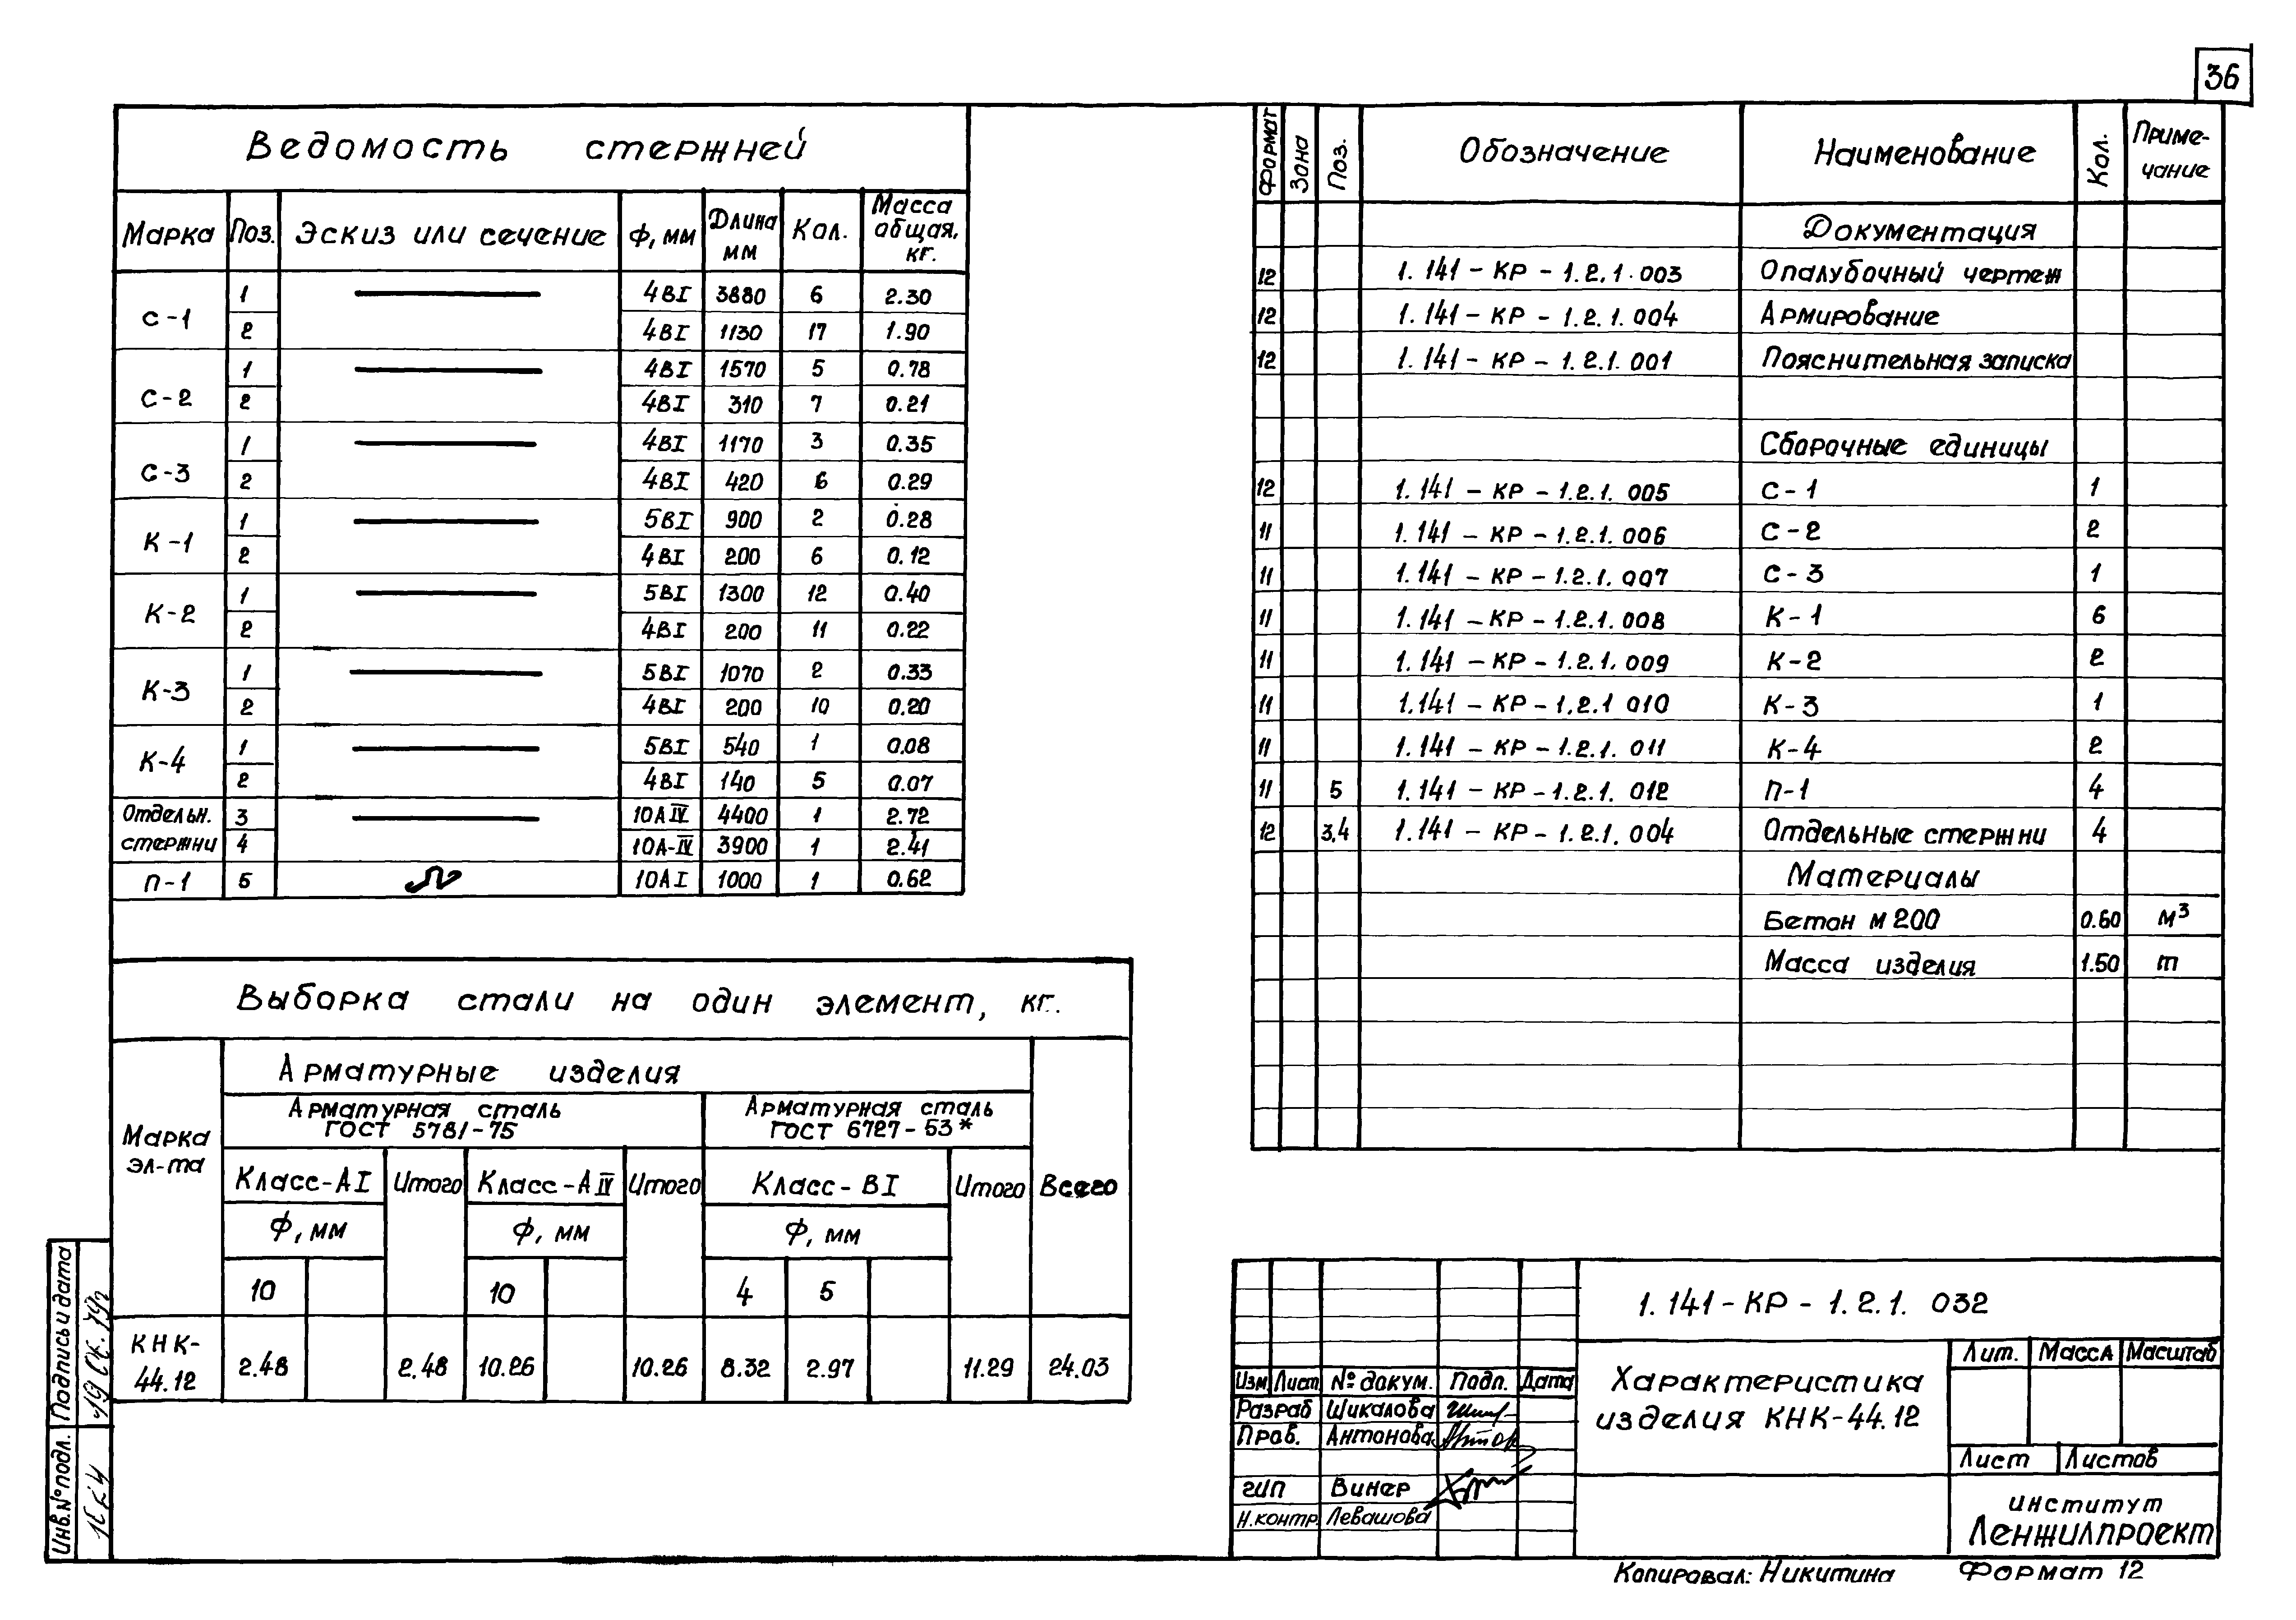 36
Ведомость стержней
Марка Поз. Эскиз или сечение Ф, мм Длина мм Кол. Масса общая, кг.
С-1 1 4ВI 3880 6 2.30
2 4ВI 1130 17 1.90
С-2 1 4ВI 1570 5 0.78
2 4ВI 310 7 0.21
С-3 1 4ВI 1170 3 0.35
2 4ВI 420 6 0.29
К-1 1 5ВI 900 2 0.28
2 4ВI 200 6 0.12
К-2 1 5ВI 1300 12 0.40
2 4ВI 200 11 0.22
К-3 1 5ВI 1070 2 0.33
2 4ВI 200 10 0.20
К-4 1 5ВI 540 1 0.08
2 4ВI 140 5 0.07
Отдельн. стержни 3 10АIV 4400 1 2.72
4 10А-IV 3900 1 2.41
П-1 5 10АI 1000 1 0.62
Выборка стали на один элемент, кг.
Марка эл-та
Арматурные изделия
Арматурная сталь ГОСТ 5781-75
Арматурная сталь ГОСТ 6727-53*
Класс-АI Итого Класс-АIV Итого Класс-ВI Итого Всего
Ф, мм Ф, мм Ф, мм
10 10 4 5
КНК-44.12 2.48 2.48 10.26 10.26 8.32 2.97 11.29 24.03
Формат Зона Поз. Обозначение Наименование Кол. Примечание
Документация
12 1.141-КР-1.2.1.003 Опалубочный чертеж
12 1.141-КР-1.2.1.004 Армирование
12 1.141-КР-1.2.1.001 Пояснительная записка
Сборочные единицы
12 1.141-КР-1.2.1.005 С-1 1
11 1.141-КР-1.2.1.006 С-2 2
11 1.141-КР-1.2.1.007 С-3 1
11 1.141-КР-1.2.1.008 К-1 6
11 1.141-КР-1.2.1.009 К-2 2
11 1.141-КР-1.2.1 010 К-3 1
11 1.141-КР-1.2.1.011 К-4 2
11 5 1.141-КР-1.2.1.012 П-1 4
12 3,4 1.141-КР-1.2.1.004 Отдельные стержни 4
Материалы
Бетон М 200 0.60 м³
Масса изделия 1.50 т
1.141-КР-1.2.1. 032
Изм Лист № докум. Подп. Дата
Разраб Шикалова
Пров. Антонова
ГИП Винер
Н.контр. Левашова
Характеристика
изделия КНК-44.12
Лит. Масса Масштаб
Лист Листов
институт
Ленжилпроект
Копировал: Никитина Формат 12
Подпись и дата
Инв.№ подл.